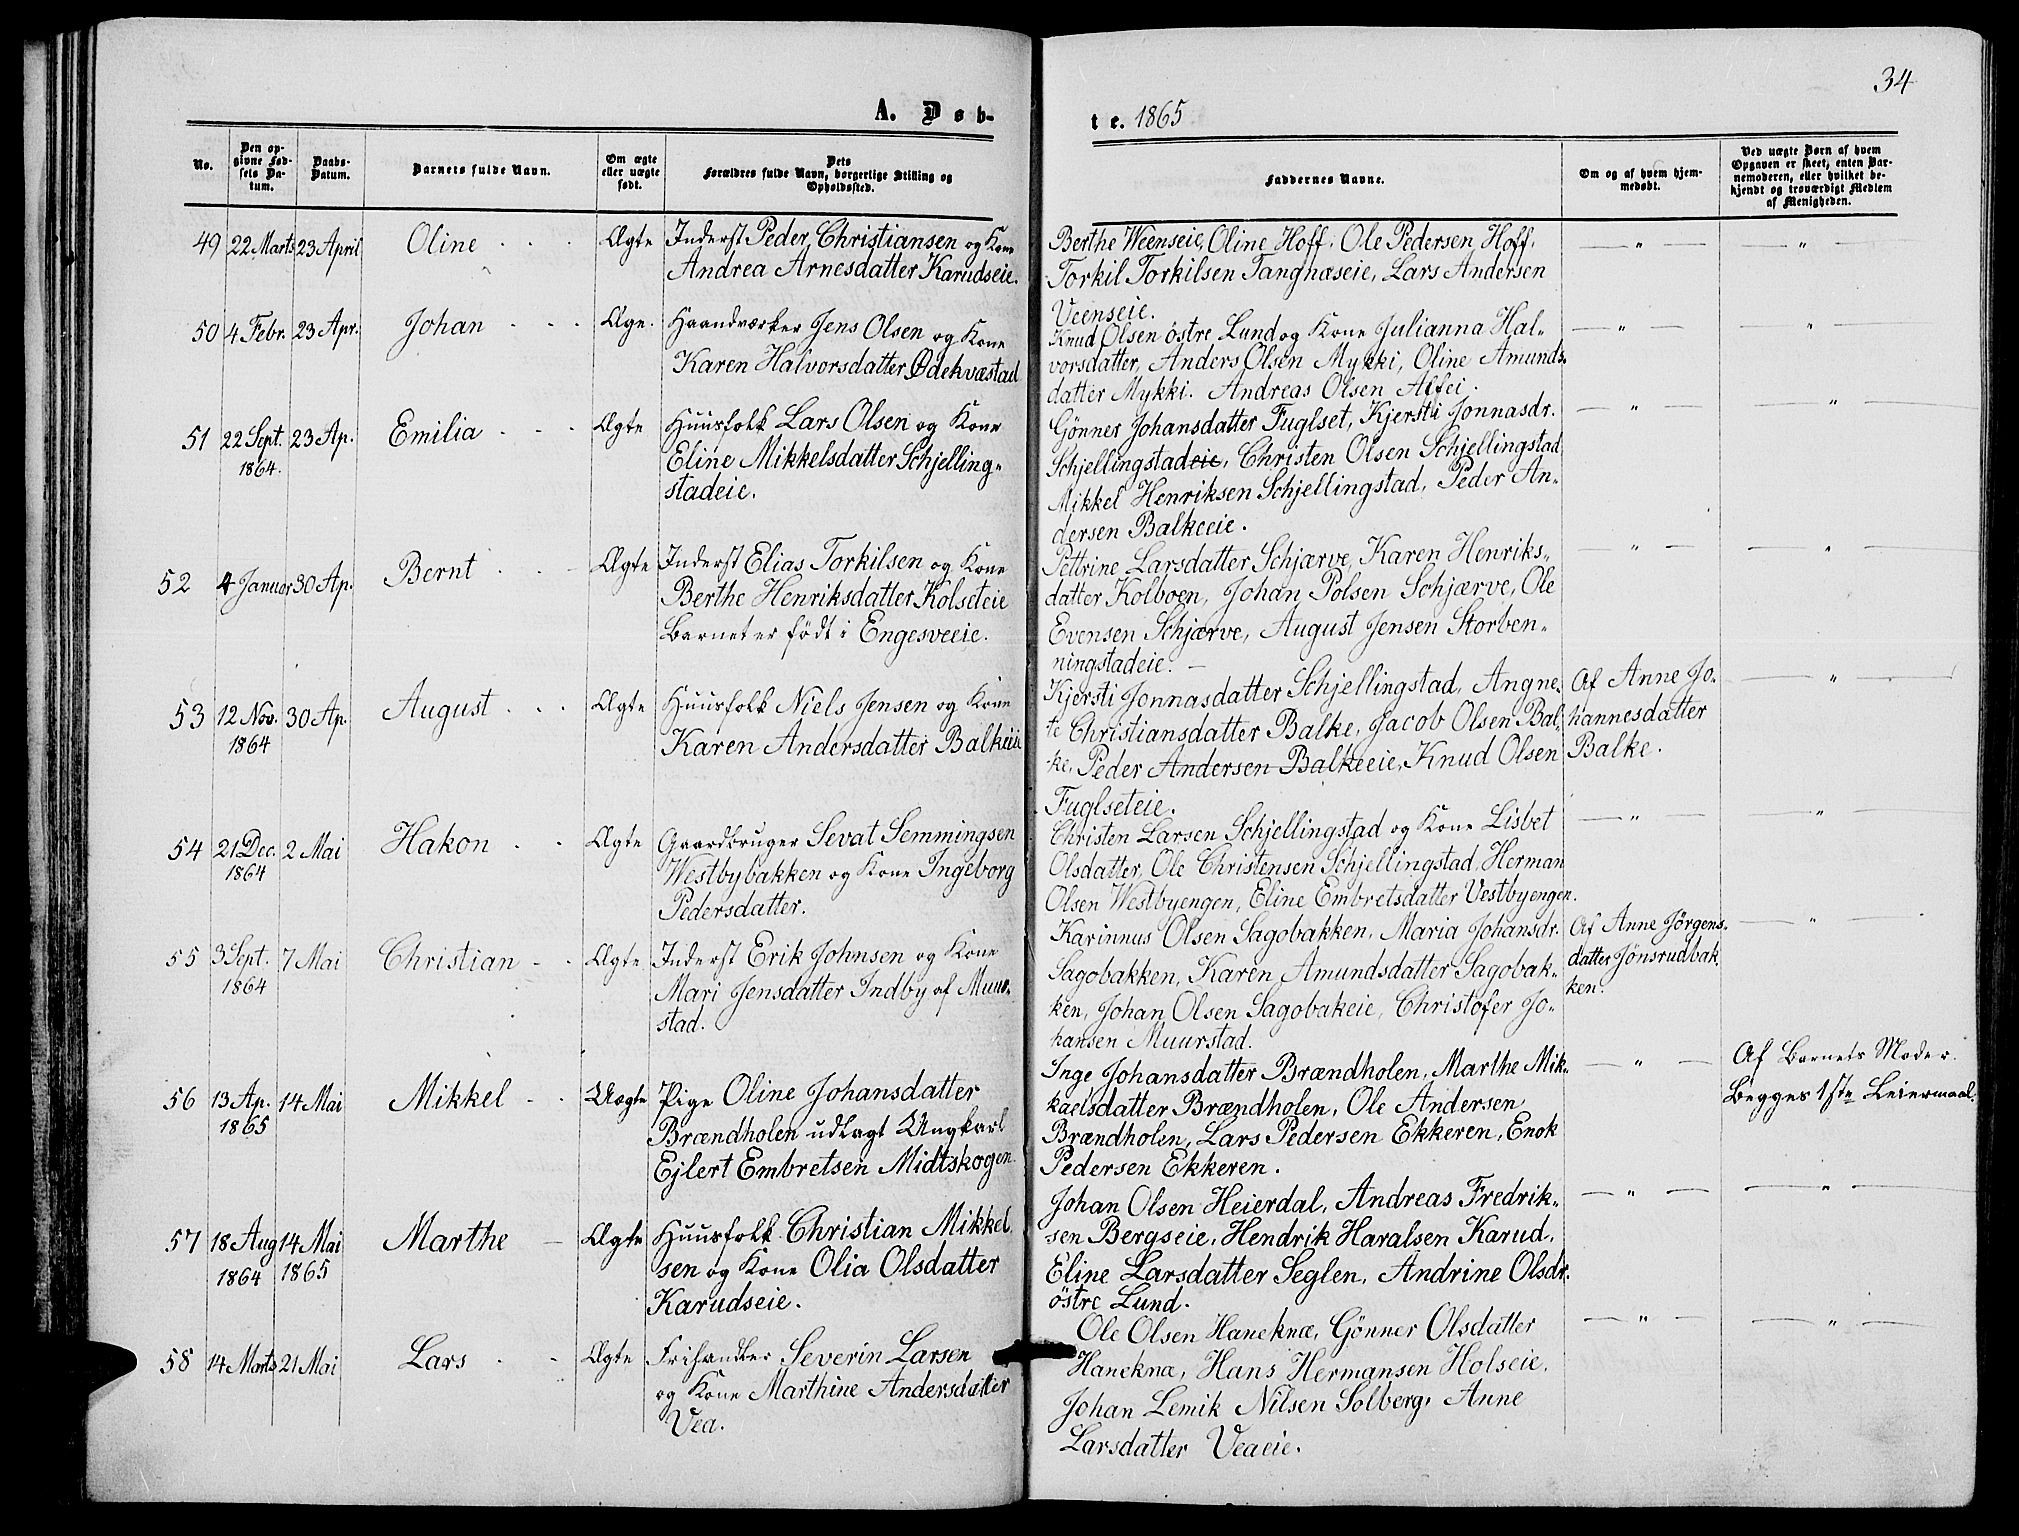 34
A. Døb-
te. 1865
No.
Den op-
givne Fød-
sels Da-
tum.
Daabs-
Datum.
Barnets fulde Navn.
Om ægte
eller uægte
født.
Dets
Forældres fulde Navn, borgerlige Stilling og
Opholdssted.
Faddernes Navne.
Om og af hvem hjem-
medøbt.
Ved uægte Børn af hvem
Opgaven er skeet, enten Bar-
nemoderen, eller hvilket be-
kjendt og troværdigt Medlem
af Menigheden.
49 22 Marts 23 April Oline Ægte
Inderst Peder Christiansen og Kone
Andrea Arnesdatter Karudseie.
Berthe Weenseie, Oline Hoff, Ole Pedersen Hoff,
Torkil Torkilsen Tangnæseie, Lars Andersen
Veenseie.
— " —
— " —
50 4 Febr. 23 Apr. Johan Ægte.
Haandværker Jens Olsen og Kone
Karen Halvorsdatter Ødekvæstad
Knud Olsen östre Lund og Kone Julianna Hal-
vorsdatter, Anders Olsen Mykki, Oline Amunds-
datter Mykki. Andreas Olsen Alfei.
— " —
— " —
51 22 Sept. 23 Ap. Emilia Ægte
1864.
Huusfolk Lars Olsen og Kone
Eline Mikkelsdatter Schjelling-
stadeie.
Gönner Johansdatter Fuglset, Kjersti Jonnasdr.
Schjellingstadeie, Christen Olsen Schjellingstad
Mikkel Henriksen Schjellingstad, Peder An-
dersen Balkeeie.
— " —
— " —
52 4 Januar 30 Ap. Bernt Ægte
Inderst Elias Torkilsen og Kone
Berthe Henriksdatter Kolseteie
Barnet er födt i Engesveeie.
Pettrine Larsdatter Schjærve, Karen Henriks-
datter Kolboen, Johan Polsen Schjærve, Ole
Evensen Schjærve, August Jensen Storben-
ningstadeie. —
— " —
— " —
53 12 Nov. 30 Ap. August Ægte
1864
Huusfolk Niels Jensen og Kone
Karen Andersdatter Balkeeie
Kjersti Jonnasdatter Schjellingstad, Angne-
te Christiansdatter Balke, Jacob Olsen Bal-
ke, Peder Andersen Balkeeie, Knud Olsen
Fuglseteie.
Af Anne Jo-
hannesdatter
Balke.
— " —
54 21 Dec. 2 Mai Hakon Ægte
1864
Gaardbruger Sevat Semmingsen
Westbybakken og Kone Ingeborg
Pedersdatter.
Christen Larsen Schjellingstad og Kone Lisbet
Olsdatter, Ole Christensen Schjellingstad, Herman
Olsen Westbyengen, Eline Embretsdatter Vestbyengen.
— " —
— " —
55 3 Sept. 7 Mai Christian Ægte
1864
Inderst Erik Johnsen og Kone
Mari Jensdatter Indby af Muur-
stad.
Karinnus Olsen Sagobakken, Maria Johansdr.
Sagobakken, Karen Amundsdatter Sagobak-
ken, Johan Olsen Sagobakeie, Christofer Jo-
hansen Muurstad.
Af Anne Jørgens-
datter Jönsrudbak-
ken.
— " —
56 13 Ap. 14 Mai Mikkel Uægte
1865
Pige Oline Johansdatter
Brændholen udlagt Ungkarl
Ejlert Embretsen Midtskogen
Inge Johansdatter Brændholen, Marthe Mik-
kaelsdatter Brændholen, Ole Andersen
Brændholen, Lars Pedersen Ekkeren, Enok
Pedersen Ekkeren.
— " —
Af Barnets Moder.
Begges 1ste Leiermaal.
57 18 Aug 14 Mai Marthe Ægte
1864 1865
Huusfolk Christian Mikkel-
sen og Kone Olia Olsdatter
Karudseie.
Johan Olsen Heierdal, Andreas Fredrik-
sen Bergseie, Hendrik Haralsen Karud,
Eline Larsdatter Seglen, Andrine Olsdr.
östre Lund.
— " —
— " —
58 14 Marts 21 Mai Lars Ægte
Frihandler Severin Larsen
og Kone Marthine Andersdatter
Vea.
Ole Olsen Haneknæ, Gönner Olsdatter
Haneknæ, Hans Hermansen Holseie,
Johan Lemik Nilsen Solberg, Anne
Larsdatter Veaeie.
— " —
— " —